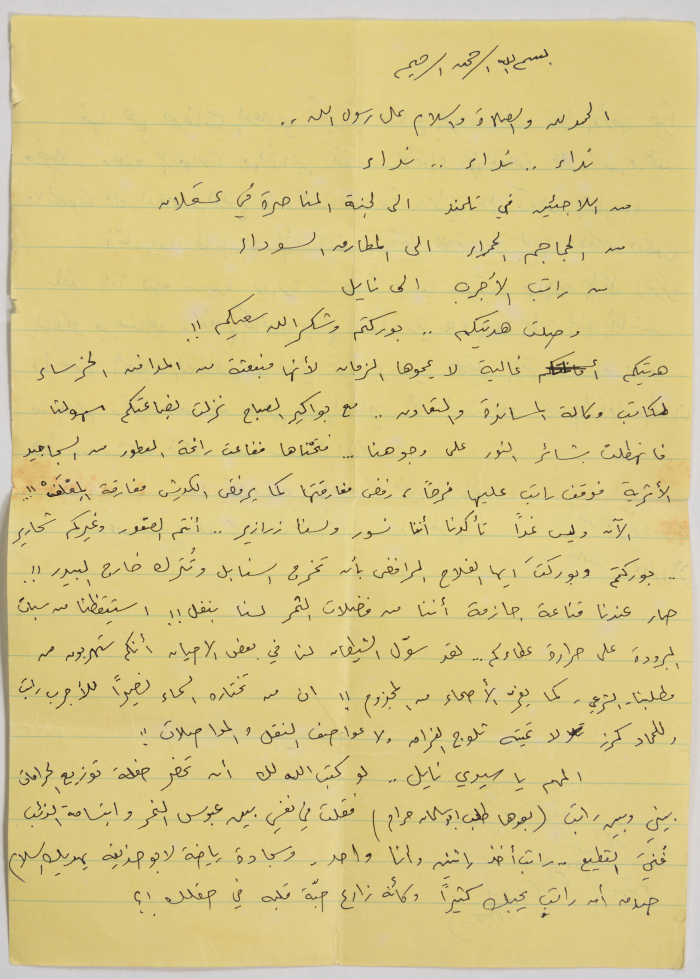 بسم الله الرحمن الرحيم
الحمد لله والصلاة والسلام على رسول الله ..
نداء .. نداء .. نداء
من اللاجئين في تلمند الى لجنة المناصرة في عسقلان
من الجماجم الحمراء الى المطارق السوداء
من راتب الأجرب الى نايل
وصلت هديتكم .. بوركتم وشكر الله سعيكم !!
هديتكم غالية لا يمحوها الزمان لأنها منبعثة من المدافن الخرساء
لمكاتب وكالة المساندة والتعاون .. مع بواكير الصباح نزلت بضاعتكم سهولنا
فانهطلت بشائر النور على وجوهنا ... فتحناها ففاحت رائحة العطور من السجاجيد
الأثرية فوقف راتب عليها فرحاً، رفض مفارقتها كما يرفض الكديش مفارقة المعلف !!
الآن وليس غداً تأكدنا أننا نسور ولسنا زرازير .. أنتم الصقور وغيركم شحارير
.. بوركتم وبوركتَ ايها الفلاح الرافض بأن تخرج السنابل وتُترك خارج البيدر !!
صار عندنا قناعة جازمة أننا من فضلات الثمر لسنا بنفل !! استيقظنا من سبات
البرودة على حرارة عطاءكم .. لقد سوّل الشيطان لنا في بعض الاحيان أنكم ستهربون من
مطلبنا الشرعي، كما يفرّ الأصحاء من المجذوم !! ان من تختاره السماء نصيراً للأجرب راتب
وللعماد كرز لا تميته ثلوج الفراق ولا عواصف النقل والمواصلات !!
المهم يا سيدي نايل .. لو كتب الله لك أن تحضر حفلة توزيع الحرامات
بيني وبين راتب ( بعدها طلب حرام ) فقلت في نفسي بين عبوس النمر وابتسامة الذئب
فنيَ القطيع .. راتب أخذ راثنين وأنا واحد، وسجادة رياضة لابو حذيفة يهديك السلام
صدق أن راتب يحبك كثيراً وكأنه زارع حبّة قلبه في حقلك !؟